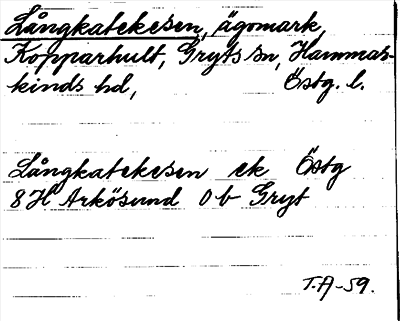 Långkatekesen, ägomark,
Kopparhult, Gryts sn, Hammar-
kinds hd, Östg. l.
Långkatekesen ek Östg
8H Arkösund 0 b Gryt
T.A-59.